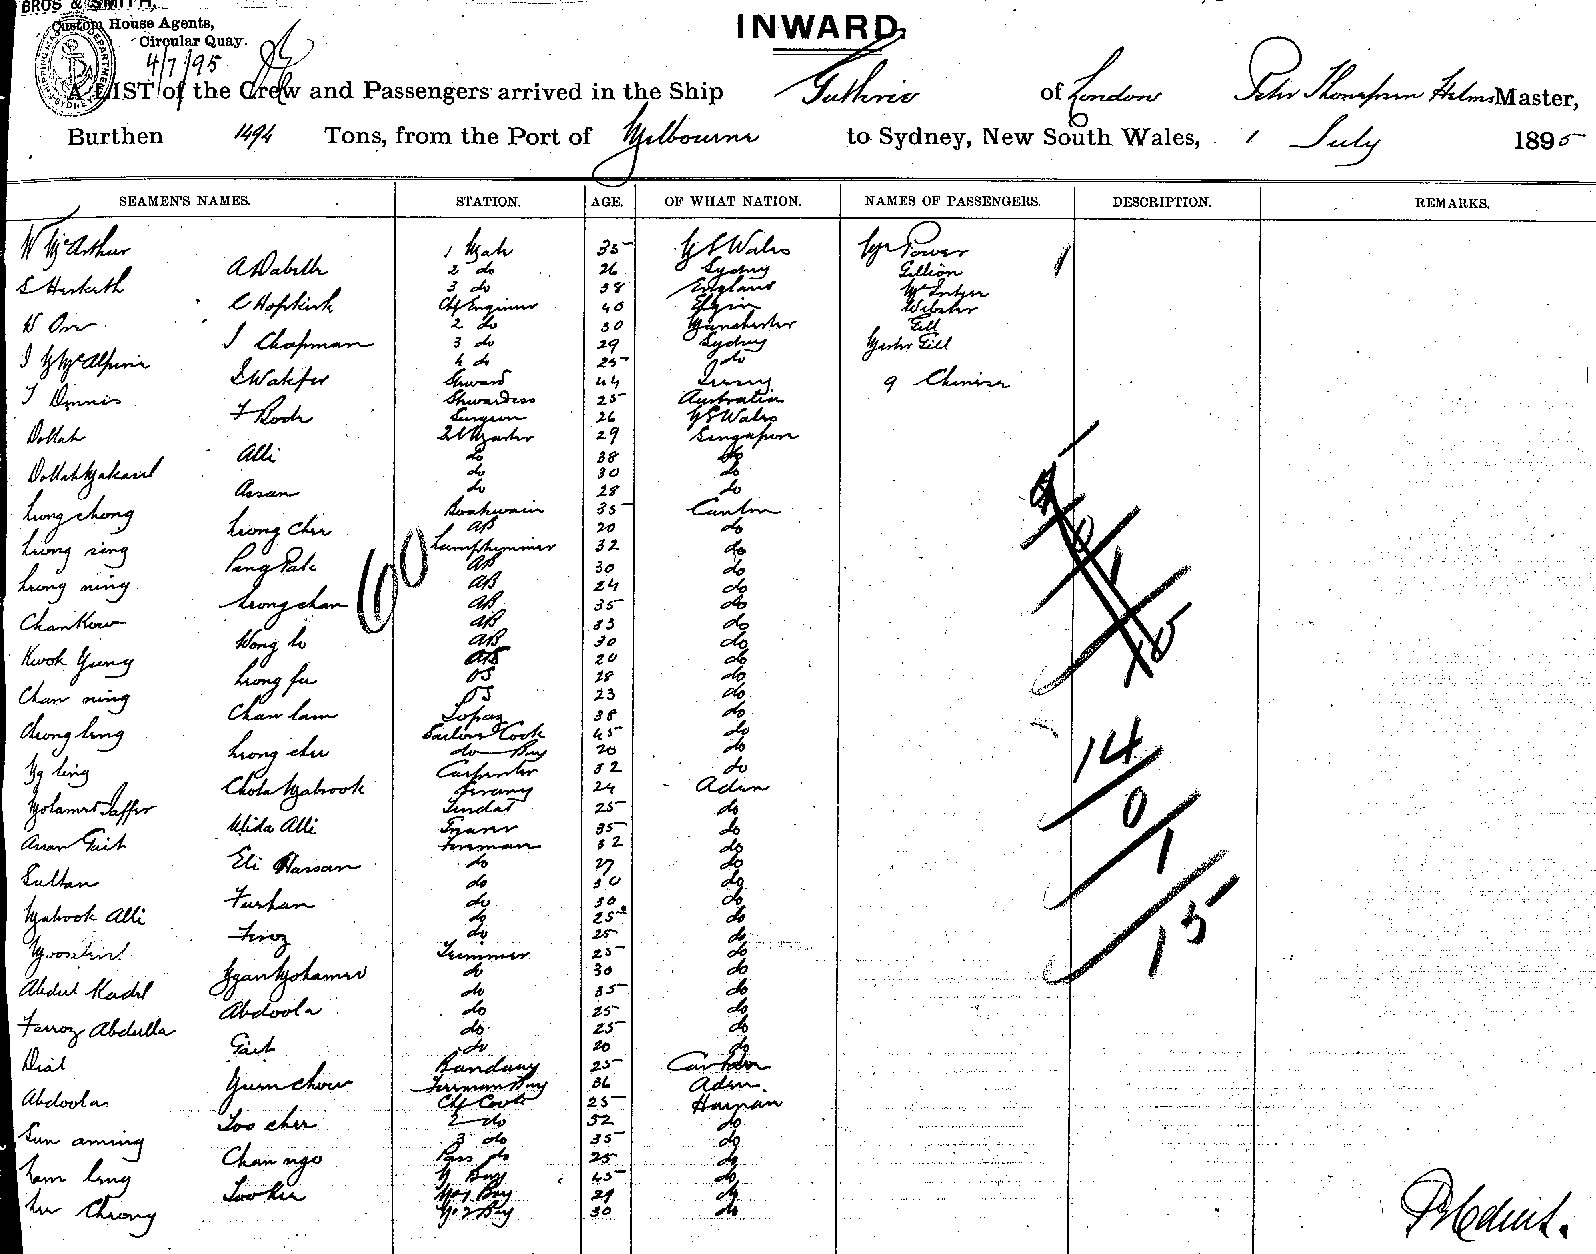 BROS & SMITH,
Custom House Agents,
Circular Quay.
4/7/95
INWARD.
A LIST of the Crew and Passengers arrived in the Ship Guthrie of London Peter Thompson Helms Master,
Burthen 1494 Tons, from the Port of Melbourne to Sydney, New South Wales, 1 July 1895
SEAMEN'S NAMES. STATION. AGE. OF WHAT NATION. NAMES OF PASSENGERS. DESCRIPTION. REMARKS.
W McArthur 1 Mate 35 N S Wales Mr Power
2 do 26 Sydney Gillion
S Hesketh 3 do 38 England McIntyre
C Hopkirk Chf Engineer 40 Elgin Webster
W Orr 2 do 30 Manchester Gill
J Chapman 3 do 29 Sydney Mastr Gill
4 do 25 do
Steward 44 9 Chinese
T Dennis Stewardess 25 Australia
F Rode Surgeon 26 N S Wales
Dollah 29 Singapore
Alli do 38 do
do 30 do
Assan do 28 do
Leong chong Boatswain 35 Canton
Leong cher AB 20 do
Leong sing Lamptrimmer 32 do
AB 30 do
Leong ning AB 24 do
Leong chan AB 35 do
Chan Kow AB 33 do
Wong lo AB 30 do
Kwok Yung AB 20 do
Leong fu OS 28 do
Chan ning OS 23 do
Chan lam 38 do
Cheong ling Sailors Cook 45 do
Leong cher do Boy 20 do
Ng ling Carpenter 32 do
24 Aden
25 do
Mida Alli 35 do
Fireman 32 do
Eli Hassan do 27 do
Sultan do 30 do
Furhan do 30 do
Mabrook Alli do 25 do
Firoz do 25 do
Trimmer 25 do
do 30 do
Abdul Kadil do 35 do
Abdoola do 25 do
Farroz Abdulla do 25 do
Gait do 20 do
Dial 25 Canton
Yum chow Firemans Boy 36 Aden.
Abdoola Chf Cook 25 Hainan
Loo cher 2 do 52 do
Sun aming 3 do 35 do
Chan ngo 25 do
Lam ling M Boy 45 do
Lookee No 1 Boy 29 do
Lee Cheong No 2 Boy 30 do
60
14
0
1
15